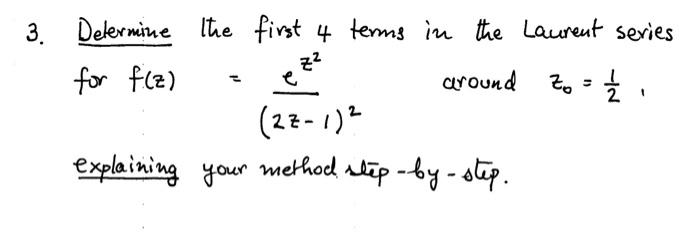 3. Determine the first 4 terms in the Laurent series
for f(z) = e^{z^2} / (2z-1)^2 around z_0 = 1/2 ,
explaining your method step-by-step.